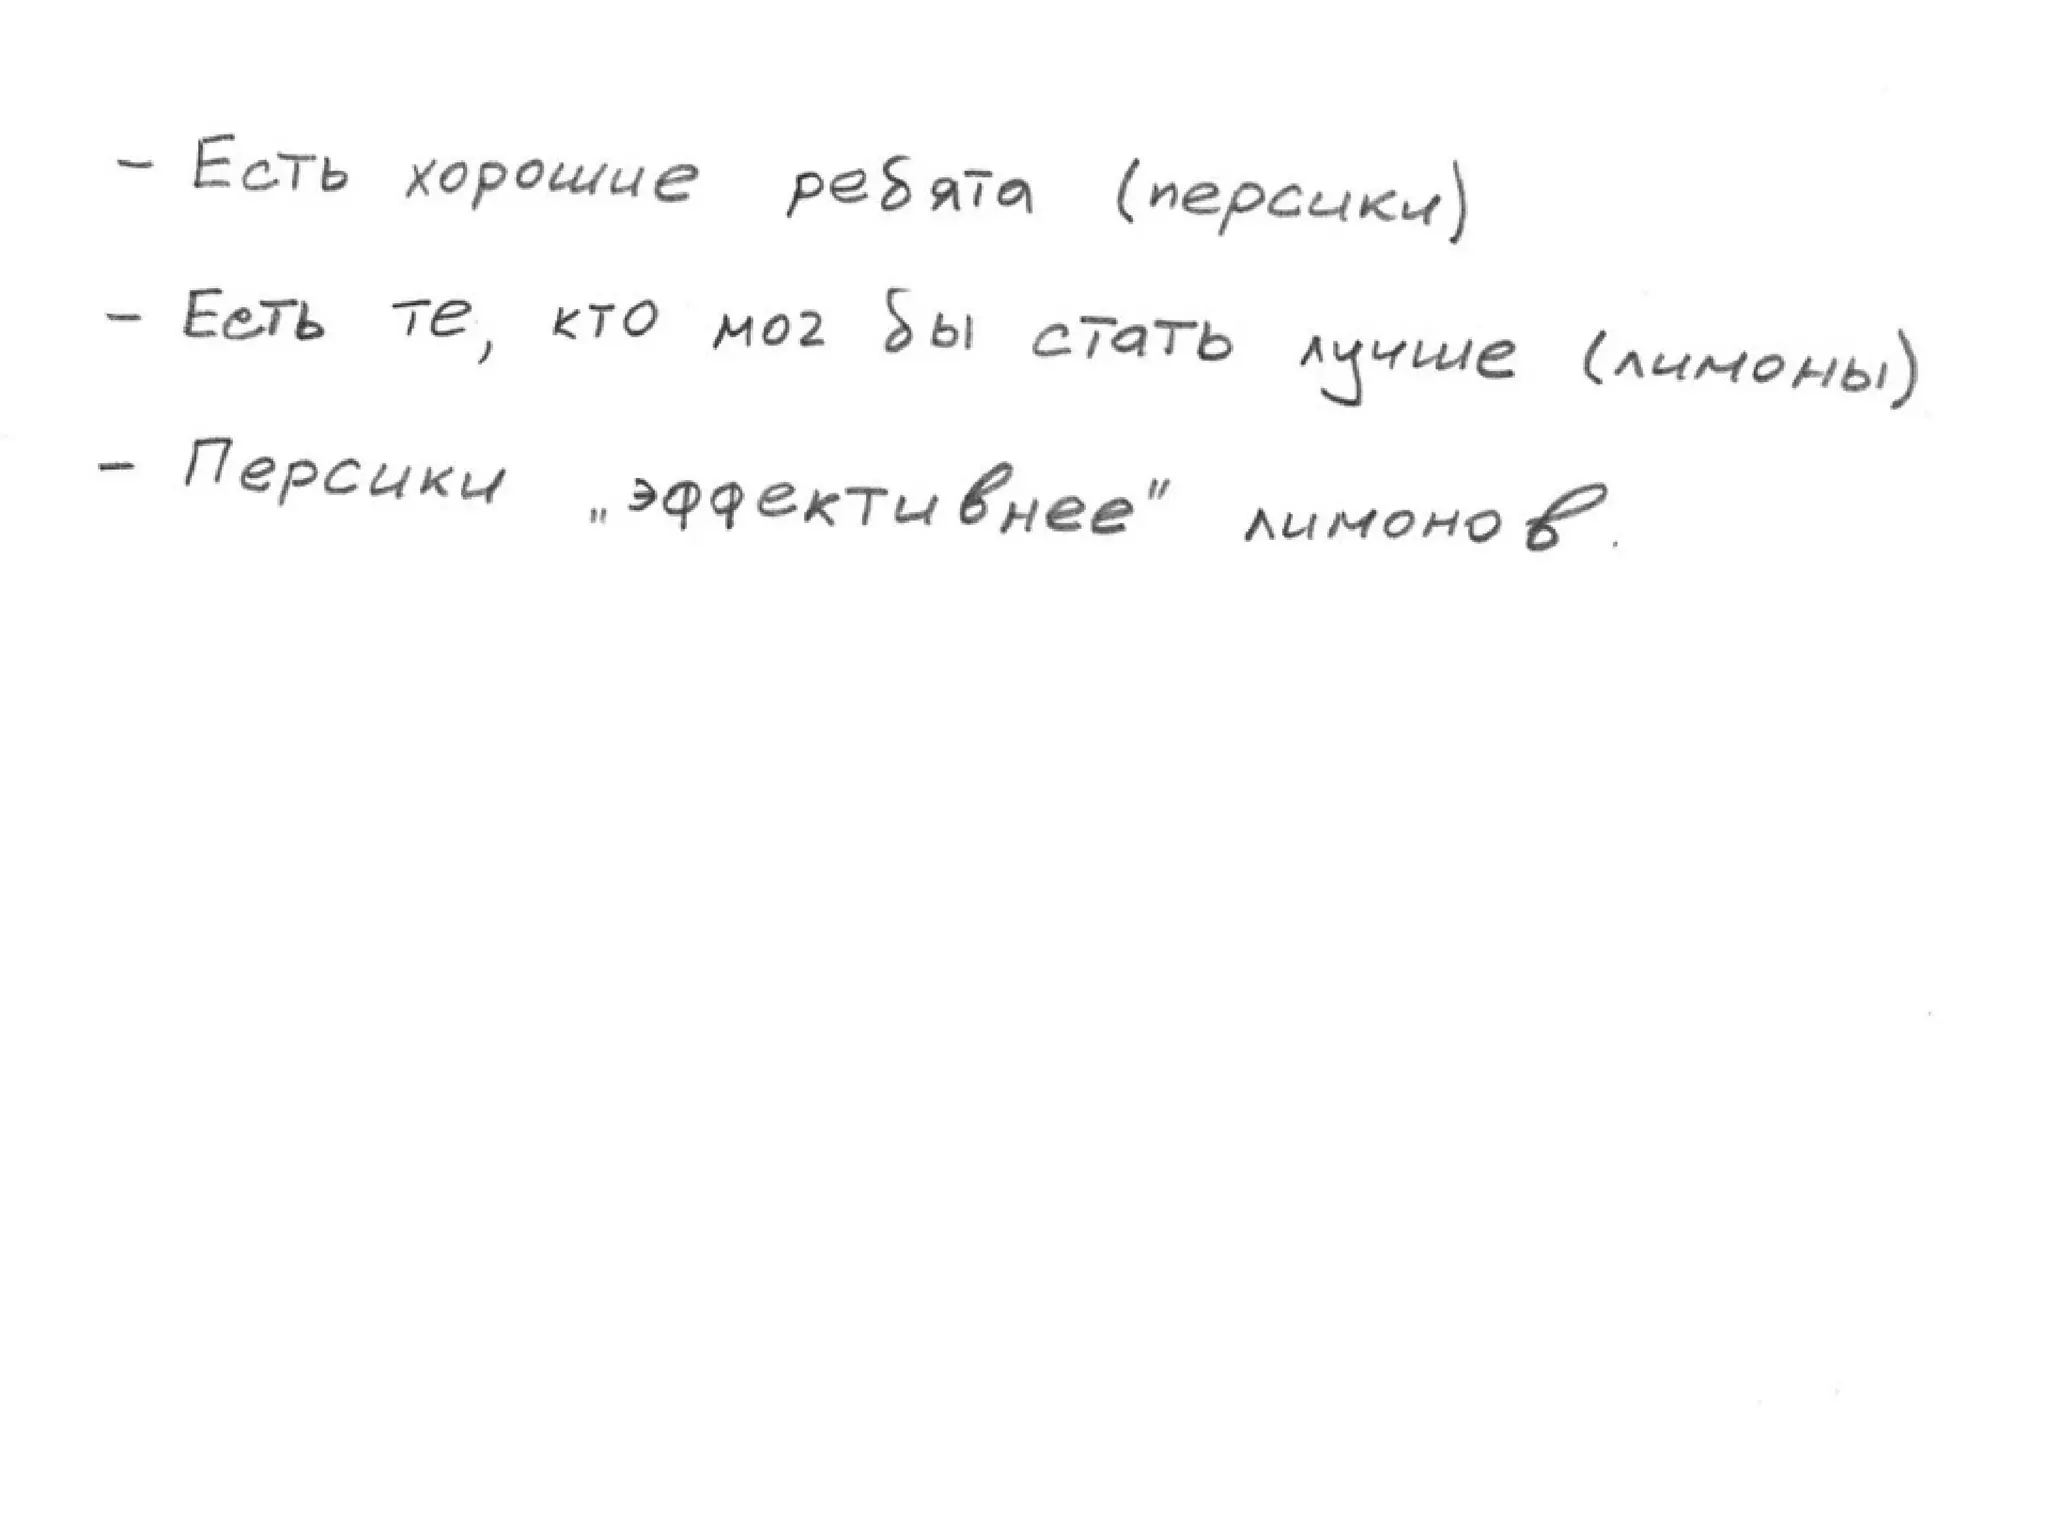 - Есть хорошие ребята (персики)
- Есть те, кто мог бы стать лучше (лимоны)
- Персики „эффективнее" лимонов.